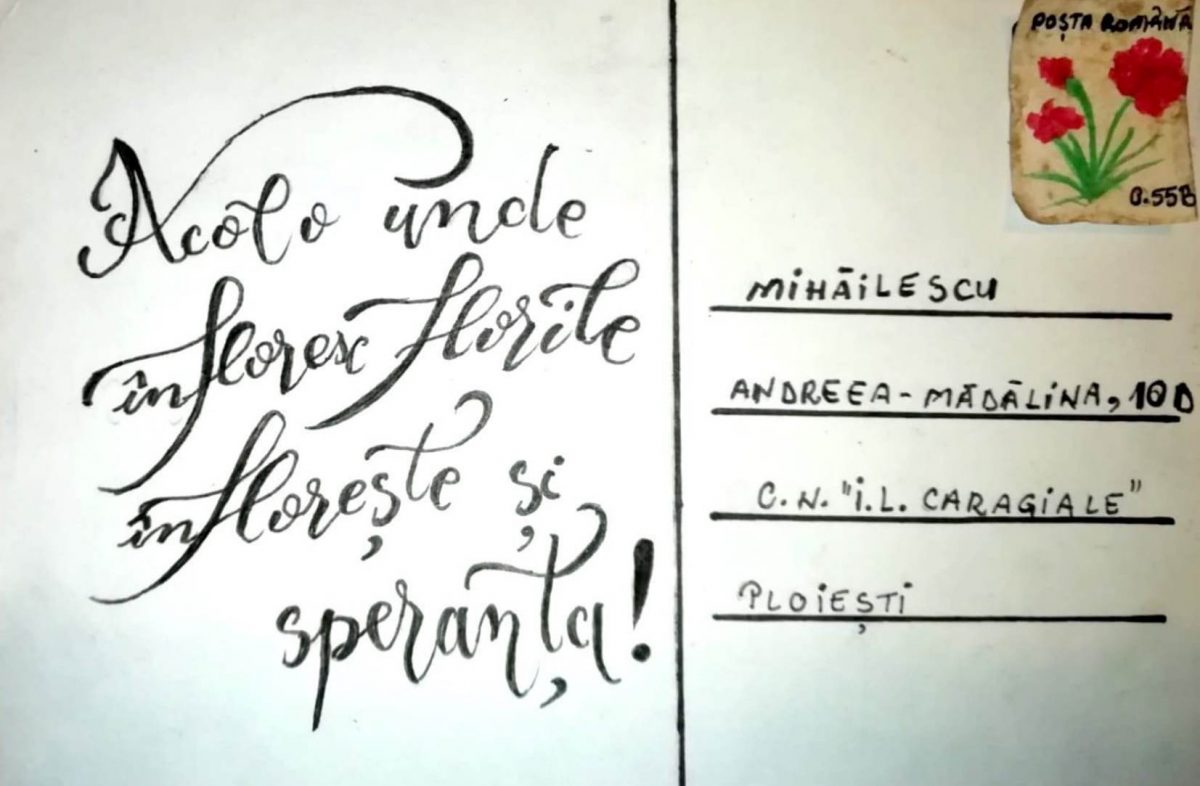 Acolo unde
înfloresc florile
înflorește și
speranța!
POȘTA ROMÂNĂ
0.55B
MIHĂILESCU
ANDREEA-MĂDĂLINA, 10D
C.N. "I.L. CARAGIALE"
PLOIEȘTI